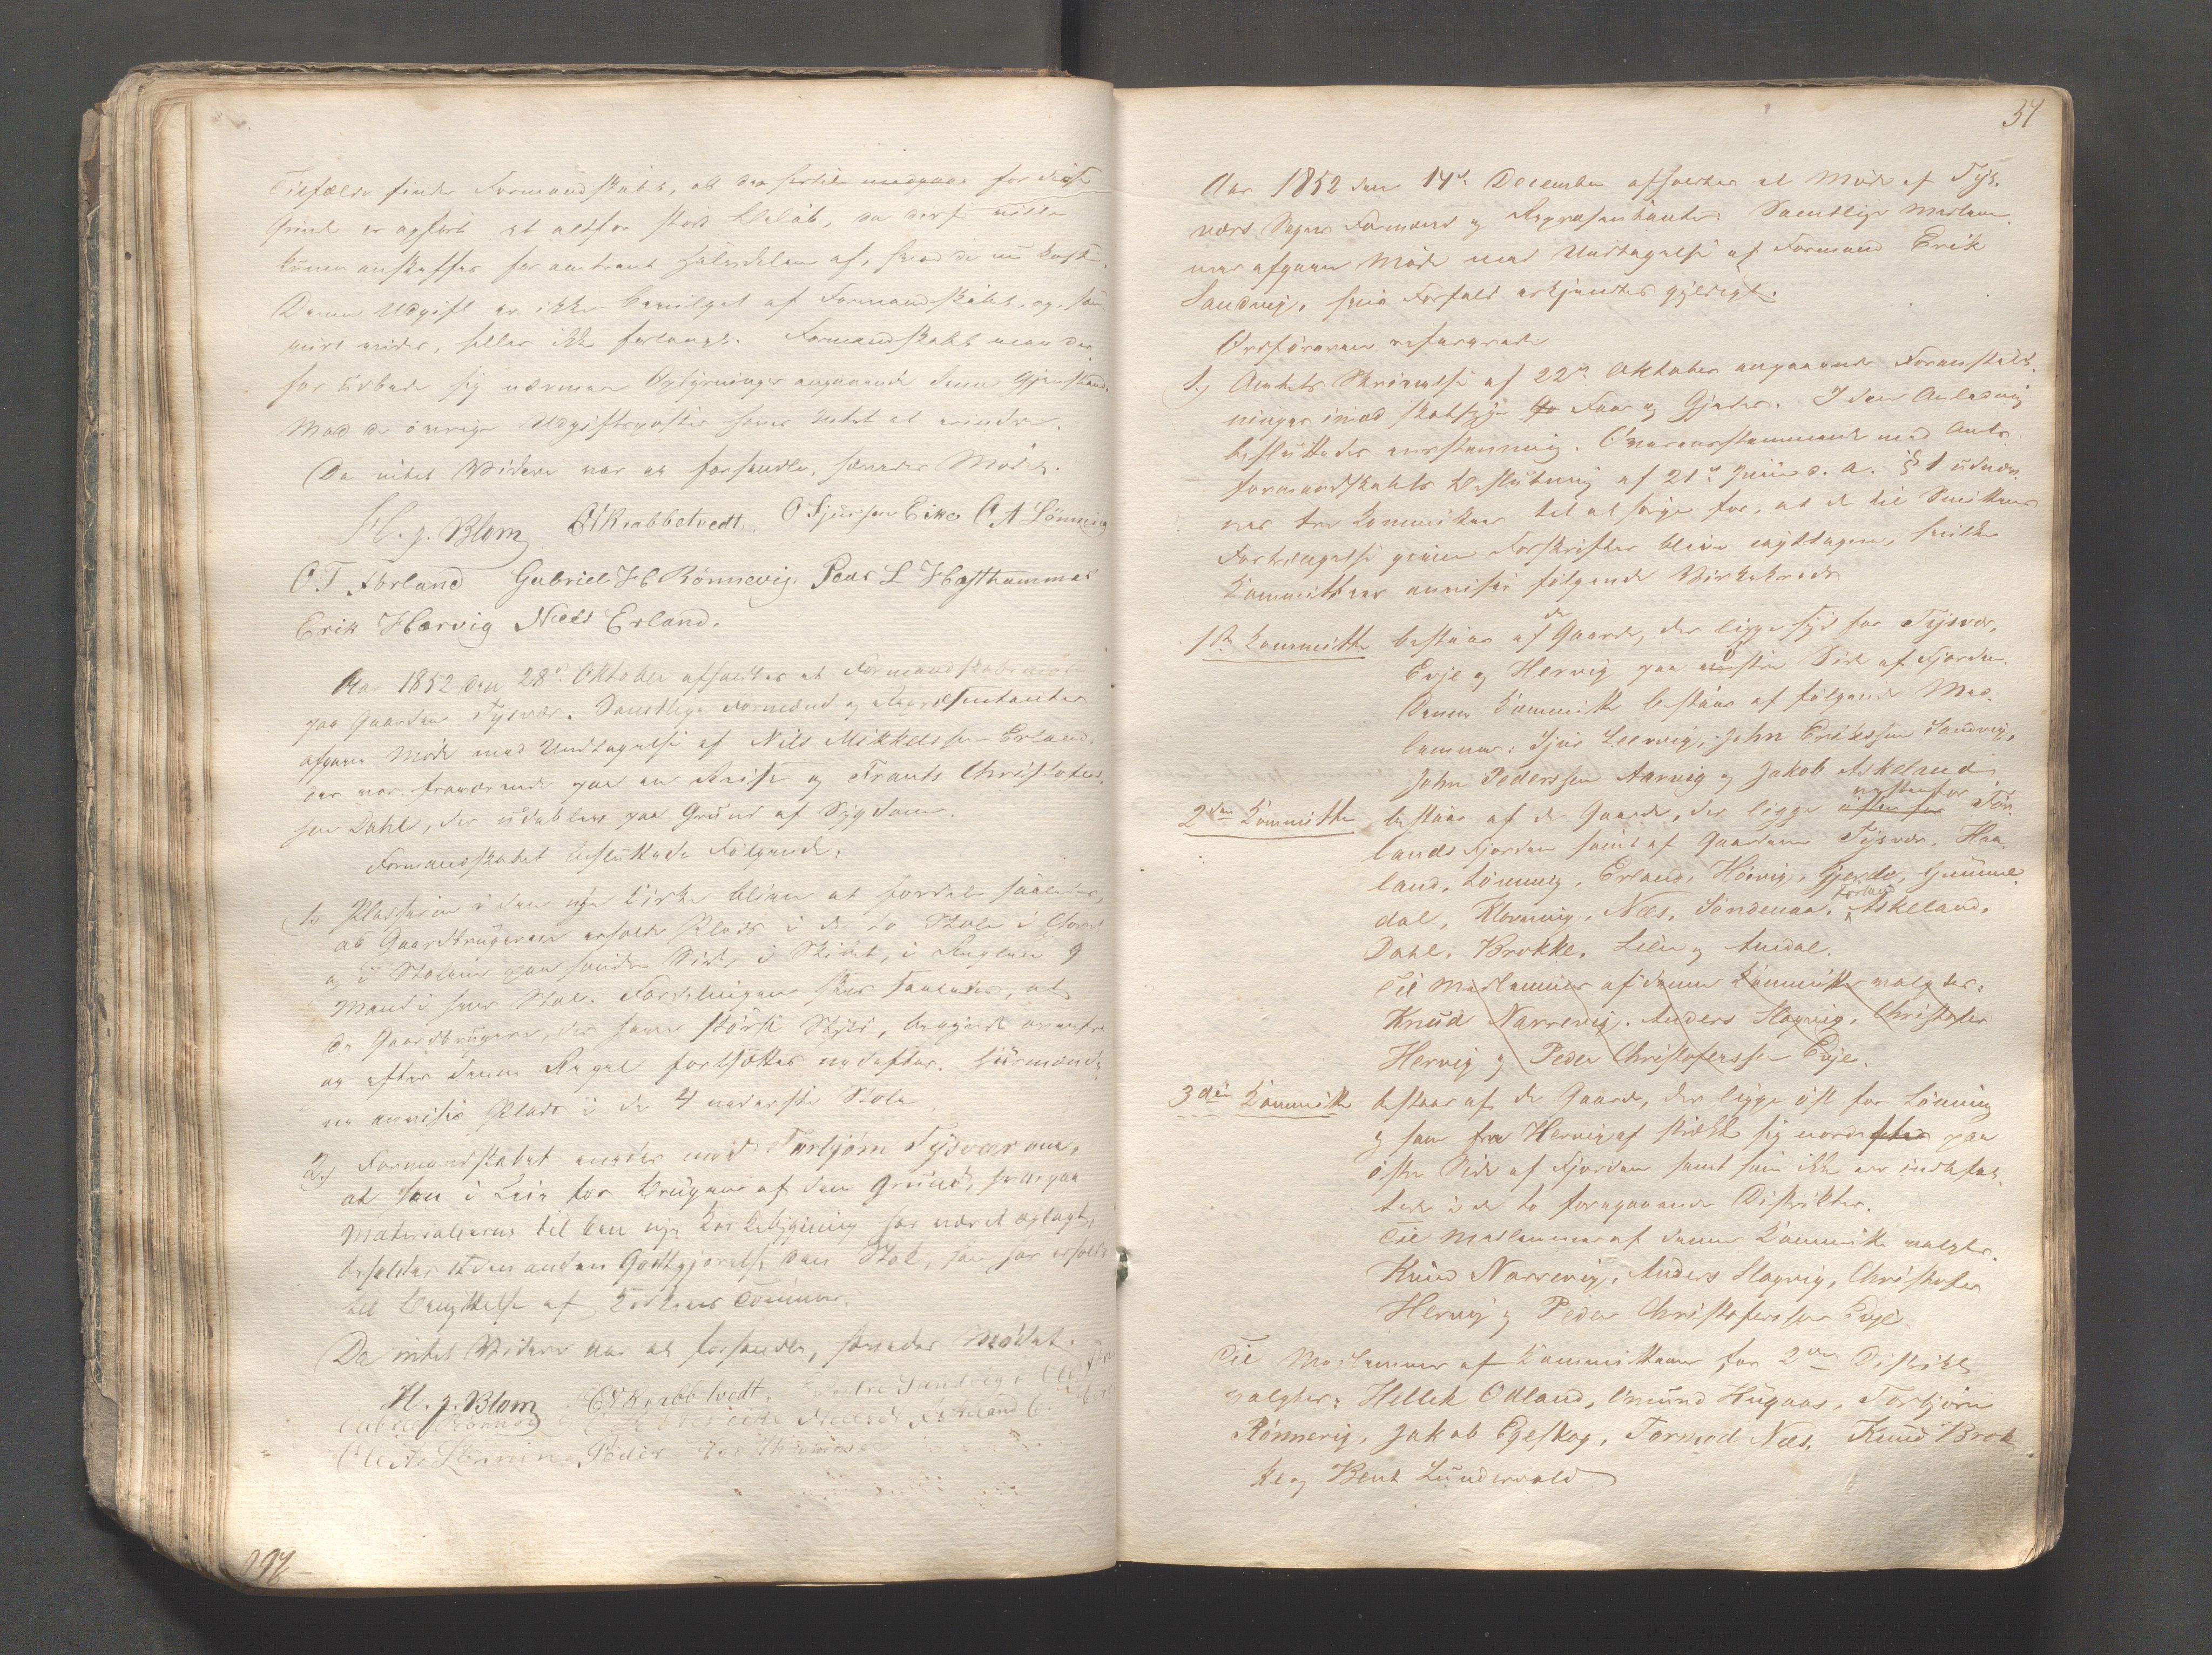 Tilfælde finder Formandskabet, at der for disse
er opført et altfor stort Beløb, da disse
kunne anskaffes for omtrent Halvdelen af, hvad de nu koste.
Denne Udgift er ikke bevilget af Formandskabet og, saa
vidt vides, heller ikke forlangt. Formandskabet maa der-
for udbede sig nærmere Oplysninger angaaende denne Gjenstand.
Mod de øvrige Udgiftsposter haves Intet at erindre.
Da intet Videre var at forhandle, hævedes Mødet.
H. J. Blom O Sjursen Eike O A Lönning
O T Förland Gabriel H Rönnevig Peder L Hæsthammer
Erik Hervig Niels Erland.
Aar 1852 den 28de Oktober afholdtes et Formandskabsmöde
paa Gaarden Tysvær. Samtlige Formænd og Repræsentanter
afgave Möde med Undtagelse af Nils Mikkelssen Erland,
der var fraværende paa en Reise og Frants Christofers-
sen Dahl, der udeblev paa Grund af Sygdom.
Formandskabet besluttede Følgende:
1, Pladserne i den nye Kirke blive at fordele saaledes,
at Gaardbrugerne erholde Plads i de to Stole i Choret
og i Stolene paa høire Side i Skibet, i Reglen 9
Mand i hver Stol. Fordelingen skeer saaledes, at
de Gaardbrugere, der have störst Skyld, begynde øverst
og efter denne Regel fortsættes nedefter. Huusmænde-
ne anvises Plads i de 4 nederste Stole.
2, Formandskabet enedes med Torbjörn Tysvær om,
at han i Leie for Brugen af den Grund, hvorpaa
Materialierne til den nye Kirkebygning har været oplagt,
beholder uden anden Godtgjörelse den Stok, han har erholdt
til Benyttelse af Kirkens Tömmer.
Da intet Videre var at forhandle, hævedes Mödet.
H. J. Blom
Peder
196
34
Aar 1852 den 14de December afholdtes et Möde af Tys-
værs Sogns Formænd og Repræsentanter. Samtlige Medlem-
mer afgave Möde med Undtagelse af Formand Erik
Sandvig, hvis Forfald erkjendtes gyldigt.
Ordföreren refererede
1, Amtets Skrivelse af 22de Oktober angaaende Foranstalt-
ninger imod Skabsyge Faar og Gjeder. I den Anledning
besluttedes enstemmig. Overensstemmende med Amts-
formandskabets Beslutning af 21de Juni d. A. § 1 udnæv-
nes tre Kommiteer til at sörge for, at de til Smittens
Fortrængelse givne Forskrifter blive iagttagne, hvilke
Kommitteer anvises følgende Virkekreds
1ste Kommitte bestaar af de Gaarde, der ligge syd for Tysvær,
Evje og Hervig paa østre Side af Fjorden.
Denne Kommitte bestaar af følgende Med-
lemmer: Sjur Leervig, John Erikssen Sandvig,
John Pederssen Aarvig og Jakob Askeland.
2den Kommitte bestaar af de Gaarde, der ligge vestenfor Før-
landsfjorden samt af Gaardene Tysvær, Haa-
land, Lönning, Erland, Hövig, Gjerde, Gumme-
dal, Klovning, Næs, Söndenaa, Förland, Askeland,
Dahl, Brokke, Leie og Amdal.
Til Medlemmer af denne Kommitte valgtes:
Knud Narrevig, Anders Slogvig, Christofer
Hervig og Peder Christoferssen Evje.
3die Kommitte bestaar af de Gaarde, der ligge øst for Lönning
og som fra Hervig af strække sig nord paa
østre Side af Fjorden samt som ikke ere indbefat-
tede i de to foregaaende Distrikter.
Til Medlemmer af denne Kommitte valgtes
Knud Narrevig, Anders Slogvig, Christofer
Hervig og Peder Christoferssen Evje.
Til Medlemmer af Kommitteen for 2det Distrikt
valgtes: Hellek Odland, Omund Hugaas, Torbjörn
Rönnevig, Jakob Egeskog, Tormod Næs, Knud Brok-
ke og Bent Lundervold